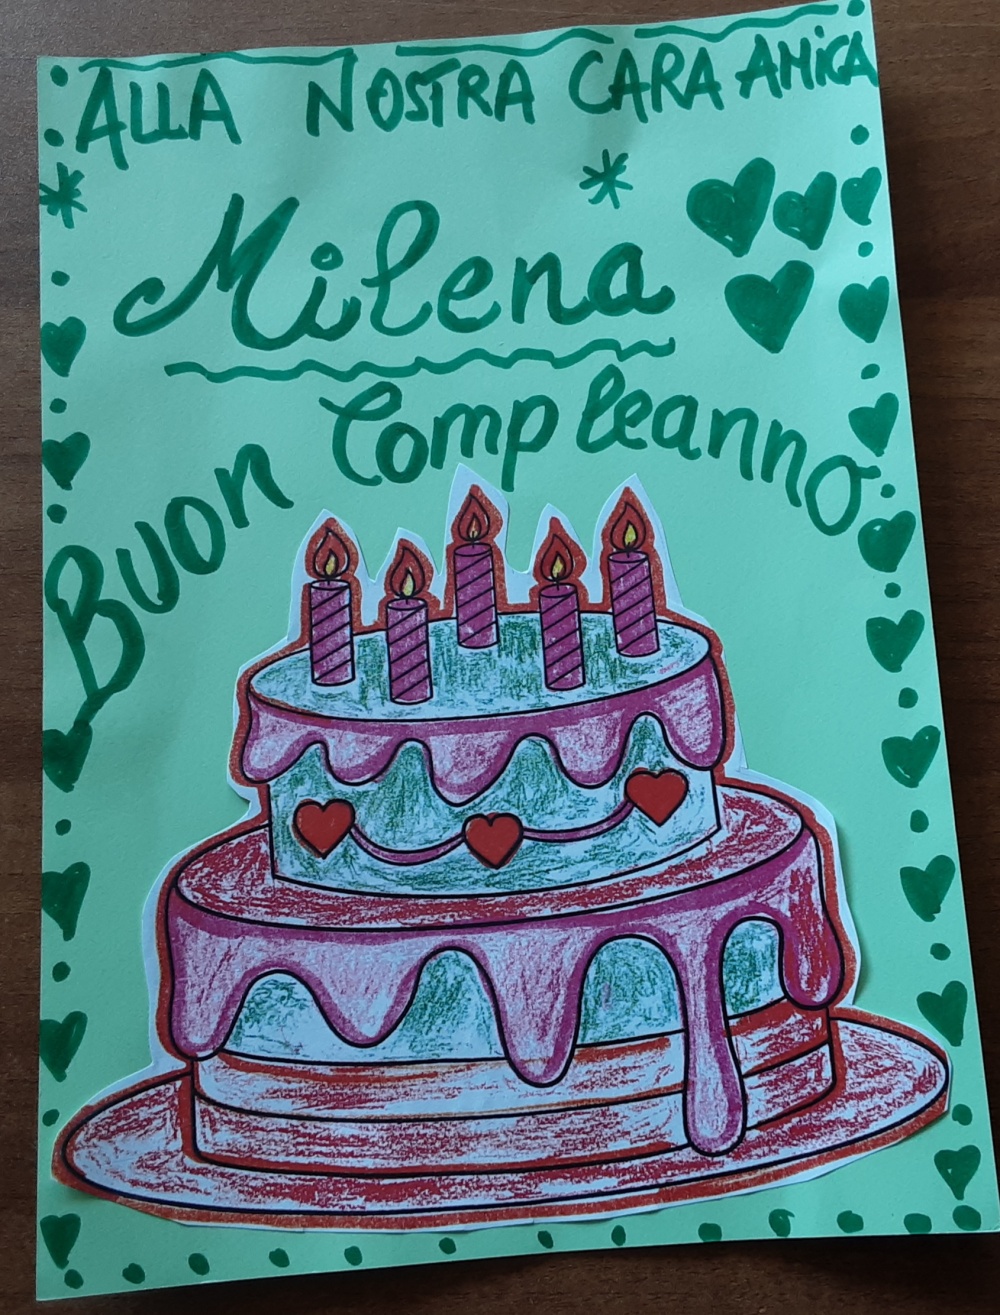 ALLA NOSTRA CARA AMICA
Milena
Buon Compleanno